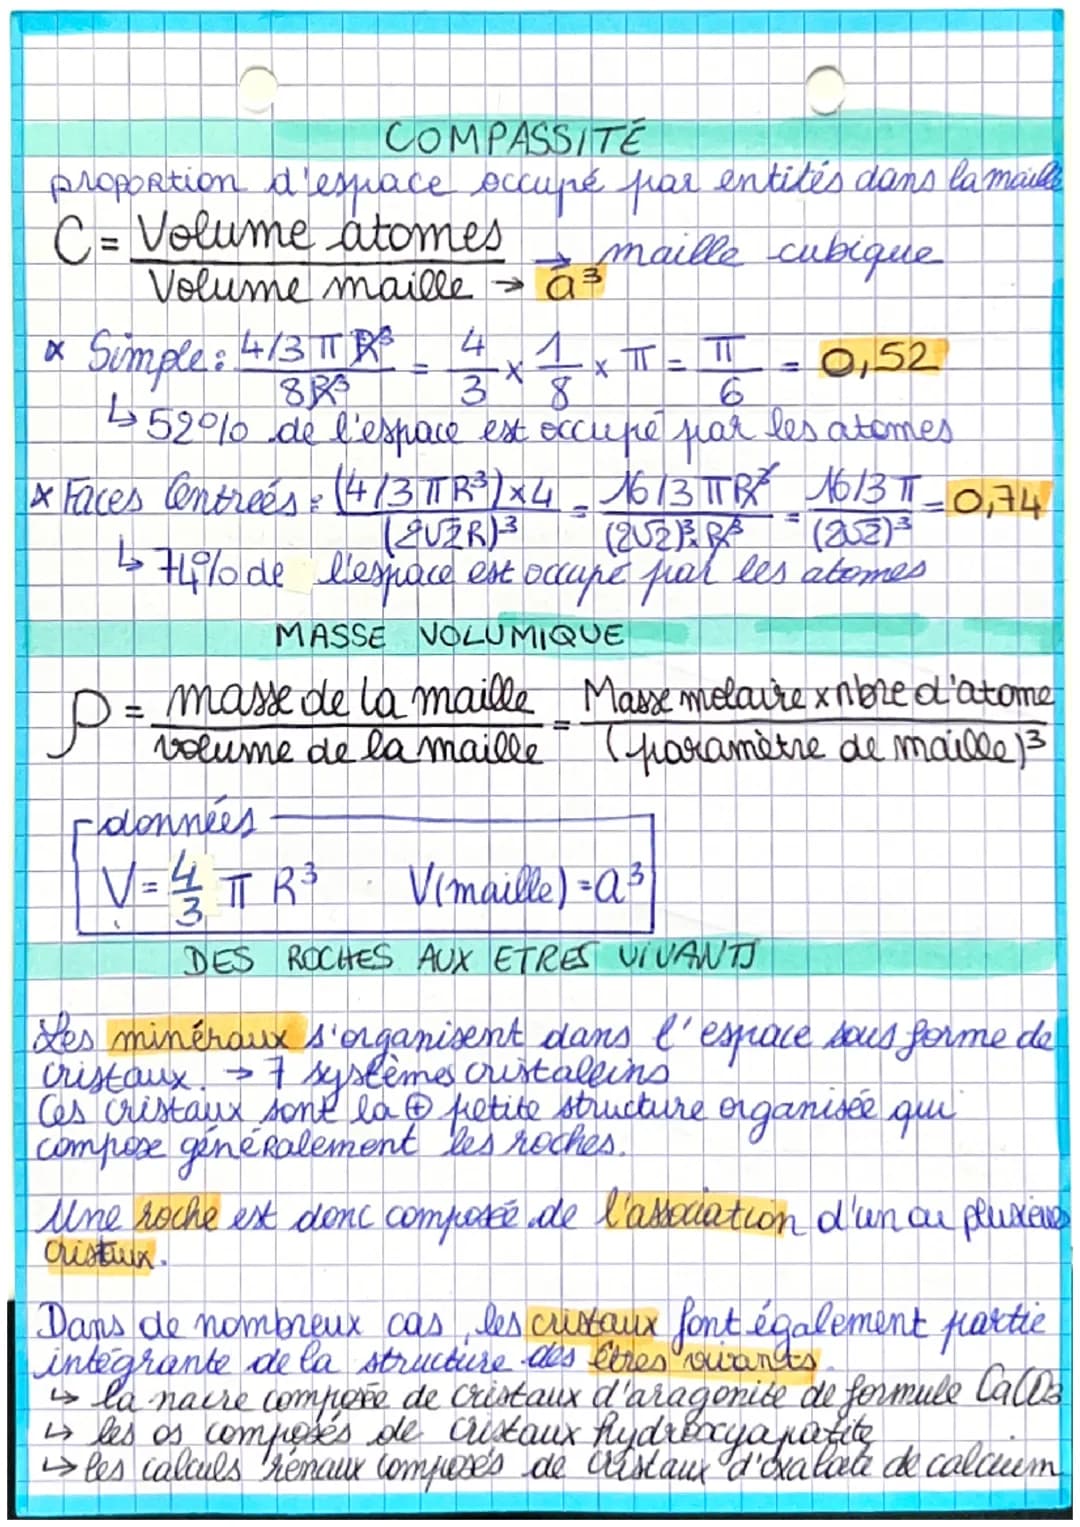 COMPASSITÉ
proportion d'espace occupé par entités dans la maille
C = Volume atomes / Volume maille → a³ → maille cubique
* Simple : 4/3 π R³ / 8R³ = 4/3 × 1/8 × π = π/6 = 0,52
↳ 52% de l'espace est occupé par les atomes
* Faces Centreés : (4/3 π R³) × 4 / (2√2R)³ = 16/3 π R³ / (2√2)³ × R³ = 16/3 π / (2√2)³ = 0,74
↳ 74% de l'espace est occupé par les atomes
MASSE VOLUMIQUE
ρ = masse de la maille / volume de la maille = Masse molaire x nbre d'atome / (paramètre de maille)³
données
V = 4/3 π R³ V(maille) = a³
DES ROCHES AUX ETRES VIVANTS
Les minéraux s'organisent dans l'espace sous forme de
cristaux. → 7 systèmes cristallins
Ces cristaux sont la ⊕ petite structure organisée qui
compose généralement les roches.
Une roche est donc composée de l'association d'un ou plusieurs
cristaux.
Dans de nombreux cas, les cristaux font également partie
intégrante de la structure des êtres vivants.
↳ la nacre composée de cristaux d'aragonite de formule CaCO3
↳ les os composés de cristaux hydroxyapatite
↳ les calculs rénaux composés de cristaux d'oxalate de calcium